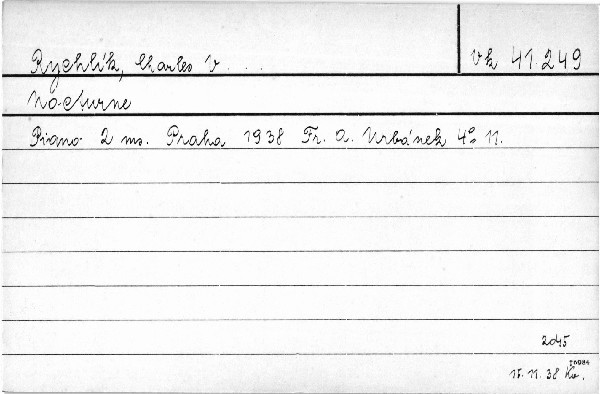 Rychlík, Charles V . . . Vk 41.249
Nocturne
Piano 2 ms. Praha 1938 Fr. A. Urbánek 4º 11.
2d45
76984
17. 11. 38 Kv.